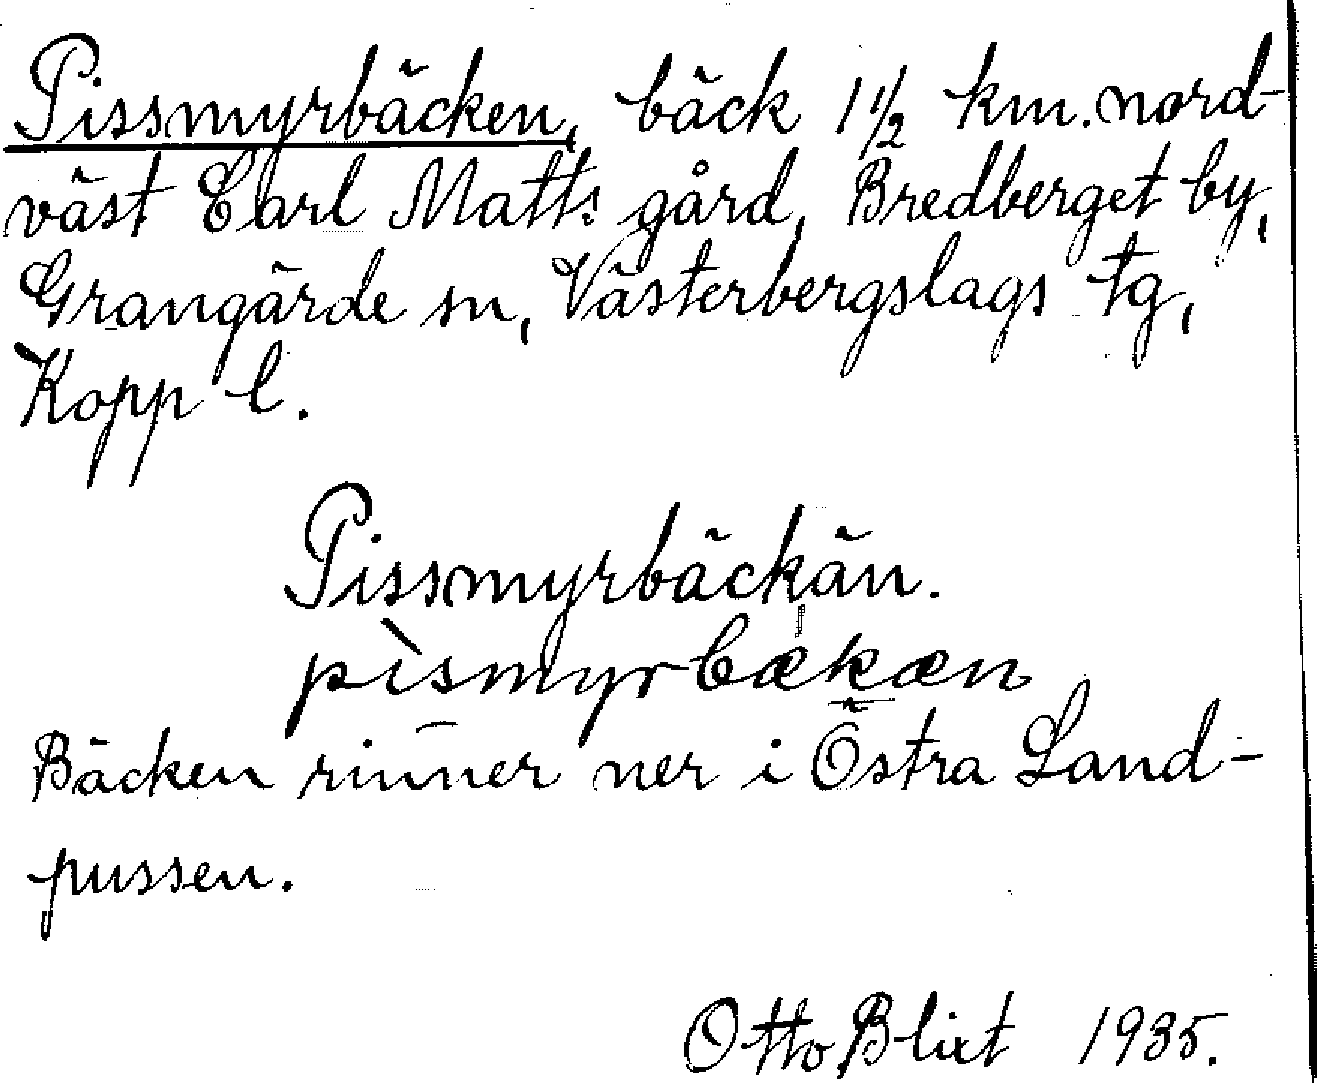 Pissmyrbäcken, bäck 1 1/2 km. nord-
väst Carl Matts gård, Bredberget by,
Grangärde sn, Västerbergslags tg,
Kopp l.
Pissmyrbäckän.
pìsmyrbækæn
Bäcken rinner ner i Östra Land-
pussen.
Otto Blixt 1935.